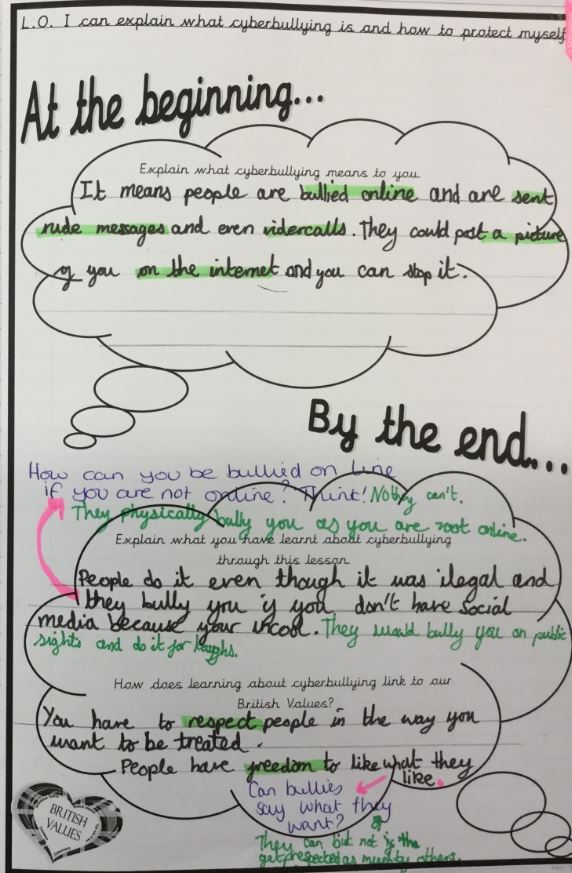 L.O. I can explain what cyberbullying is and how to protect myself
At the beginning...
Explain what cyberbullying means to you.
It means people are bullied online and are sent
rude messages and even videocalls. They could post a picture
of you on the internet and you can stop it.
By the end...
How can you be bullied on line
if you are not online? Think! Nothy can't.
They physically bully you as you are not online.
Explain what you have learnt about cyberbullying
through this lesson.
People do it even though it was ilegal and
they bully you if you don't have social
media because your uncool. They would bully you on public
sights and do it for laughs.
How does learning about cyberbullying link to our
British Values?
You have to respect people in the way you
want to be treated.
People have freedom to like what they
like.
Can bullies
say what they
want?
They can but not
get respected as much by others.
BRITISH
VALUES